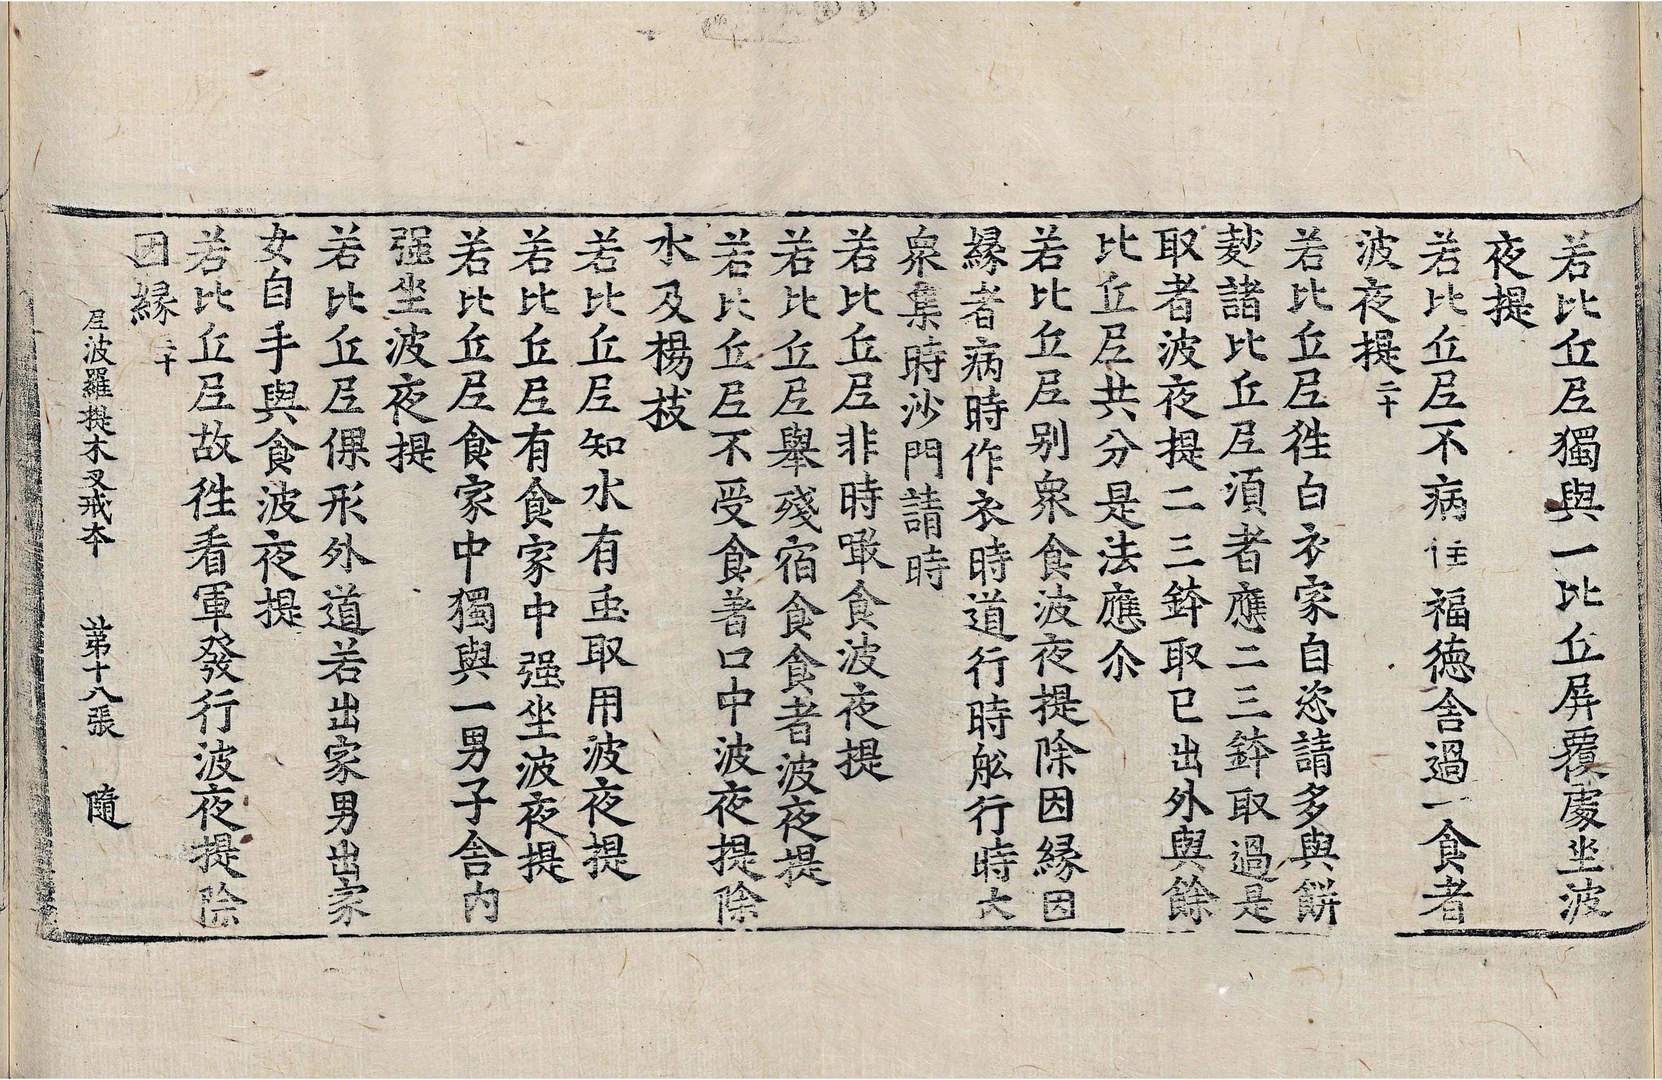 若比丘尼獨與一比丘屏覆處坐波
夜提
若比丘尼不病住福德舍過一食者
波夜提二十
若比丘尼徃白衣家自恣請多與餅
麨諸比丘尼湏者應二三鉢取過是
取者波夜提二三鉢取已出外與餘
比丘尼共分是法應尒
若比丘尼别衆食波夜提除因縁因
縁者病時作衣時道行時舩行時大
衆集時沙門請時
若比丘尼非時噉食波夜提
若比丘尼舉殘宿食食者波夜提
若比丘尼不受食著口中波夜提除
水及楊枝
若比丘尼知水有䖝取用波夜提
若比丘尼有食家中强坐波夜提
若比丘尼食家中獨與一男子舍内
强坐波夜提
若比丘尼倮形外道若出家男出家
女自手與食波夜提
若比丘尼故徃看軍發行波夜提除
因縁三十
尼波羅提木叉戒本 苐十八張 隨